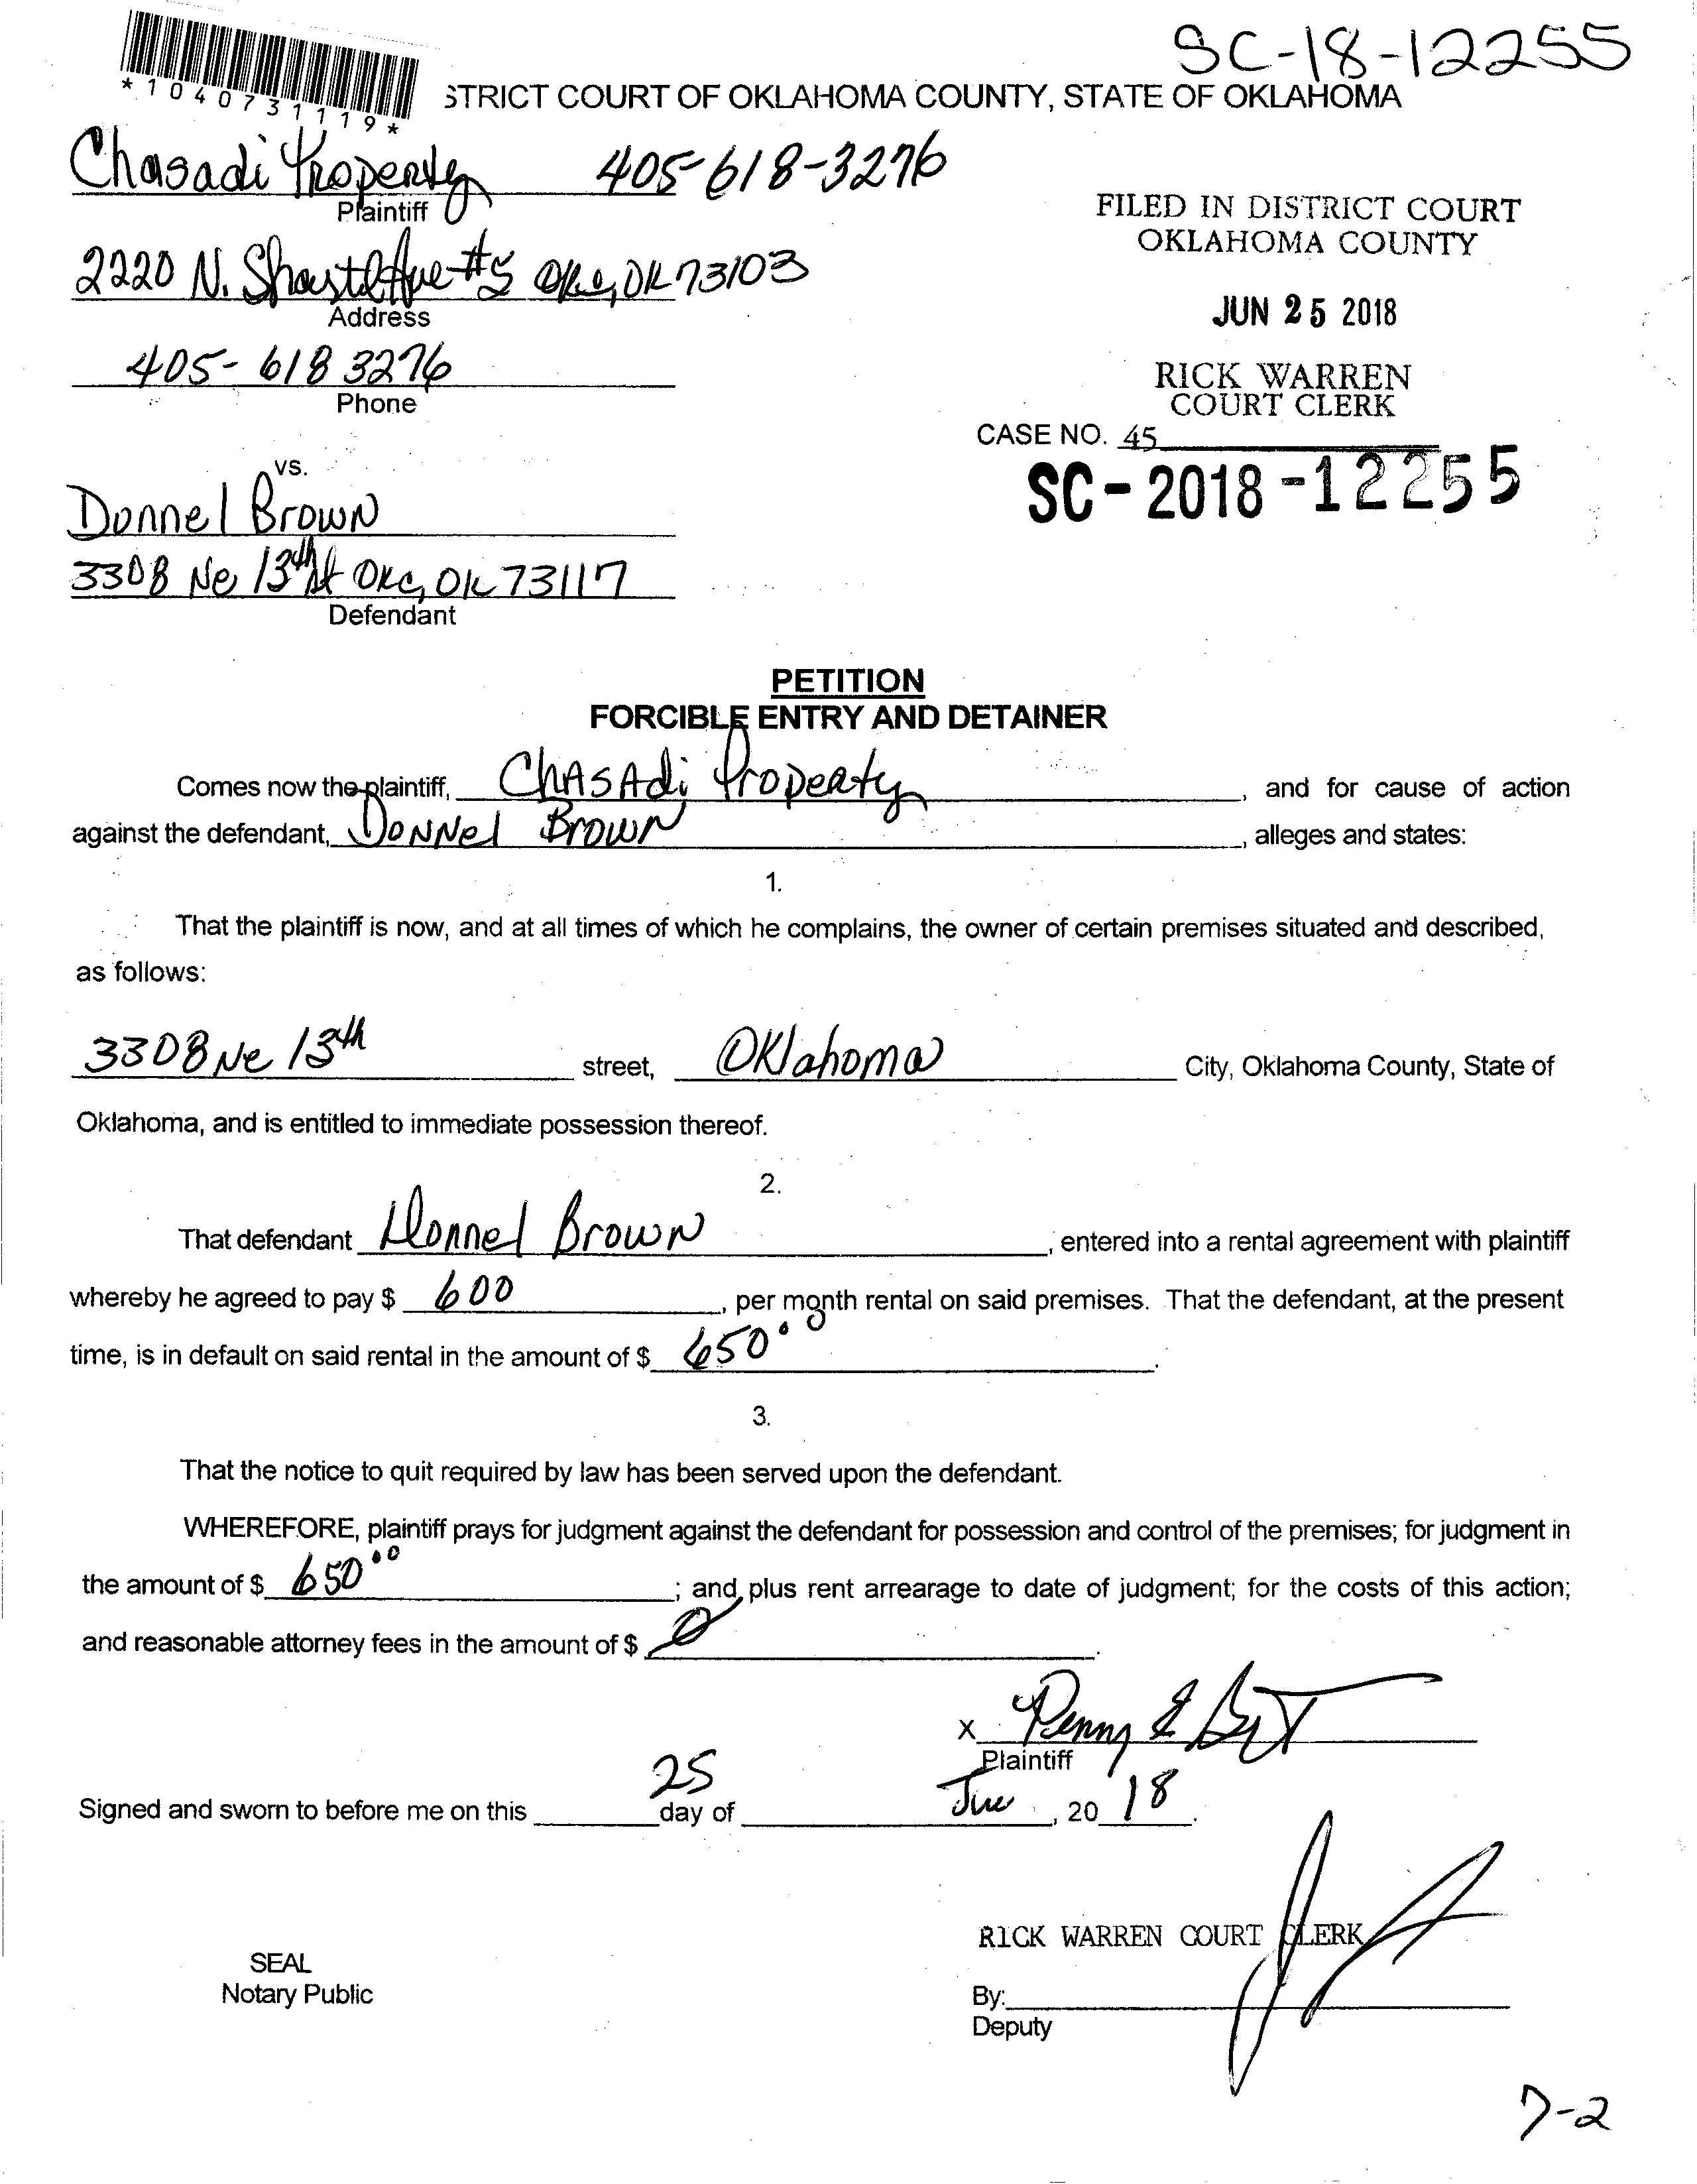 SC-18-12255
*1040731119*
STRICT COURT OF OKLAHOMA COUNTY, STATE OF OKLAHOMA
Chasadi Property 405-618-3276
Plaintiff
FILED IN DISTRICT COURT
OKLAHOMA COUNTY
2220 N. Ave #5 OKC, OK 73103
Address
JUN 25 2018
405-618 3276
Phone
RICK WARREN
COURT CLERK
CASE NO. 45
SC-2018-12255
vs.
Donnel Brown
3308 Ne 13th St OKC, OK 73117
Defendant
PETITION
FORCIBLE ENTRY AND DETAINER
Comes now the plaintiff, ChasAdi Property, and for cause of action
against the defendant, Donnel Brown, alleges and states:
1.
That the plaintiff is now, and at all times of which he complains, the owner of certain premises situated and described,
as follows:
3308 Ne 13th street, Oklahoma City, Oklahoma County, State of
Oklahoma, and is entitled to immediate possession thereof.
2.
That defendant Donnel Brown, entered into a rental agreement with plaintiff
whereby he agreed to pay $ 600, per month rental on said premises. That the defendant, at the present
time, is in default on said rental in the amount of $ 650.00.
3.
That the notice to quit required by law has been served upon the defendant.
WHEREFORE, plaintiff prays for judgment against the defendant for possession and control of the premises; for judgment in
the amount of $ 650.00; and, plus rent arrearage to date of judgment; for the costs of this action;
and reasonable attorney fees in the amount of $ 0.
X Penny
Plaintiff
Signed and sworn to before me on this 25 day of June, 20 18.
RICK WARREN COURT CLERK
SEAL
Notary Public
By:
Deputy
7-2